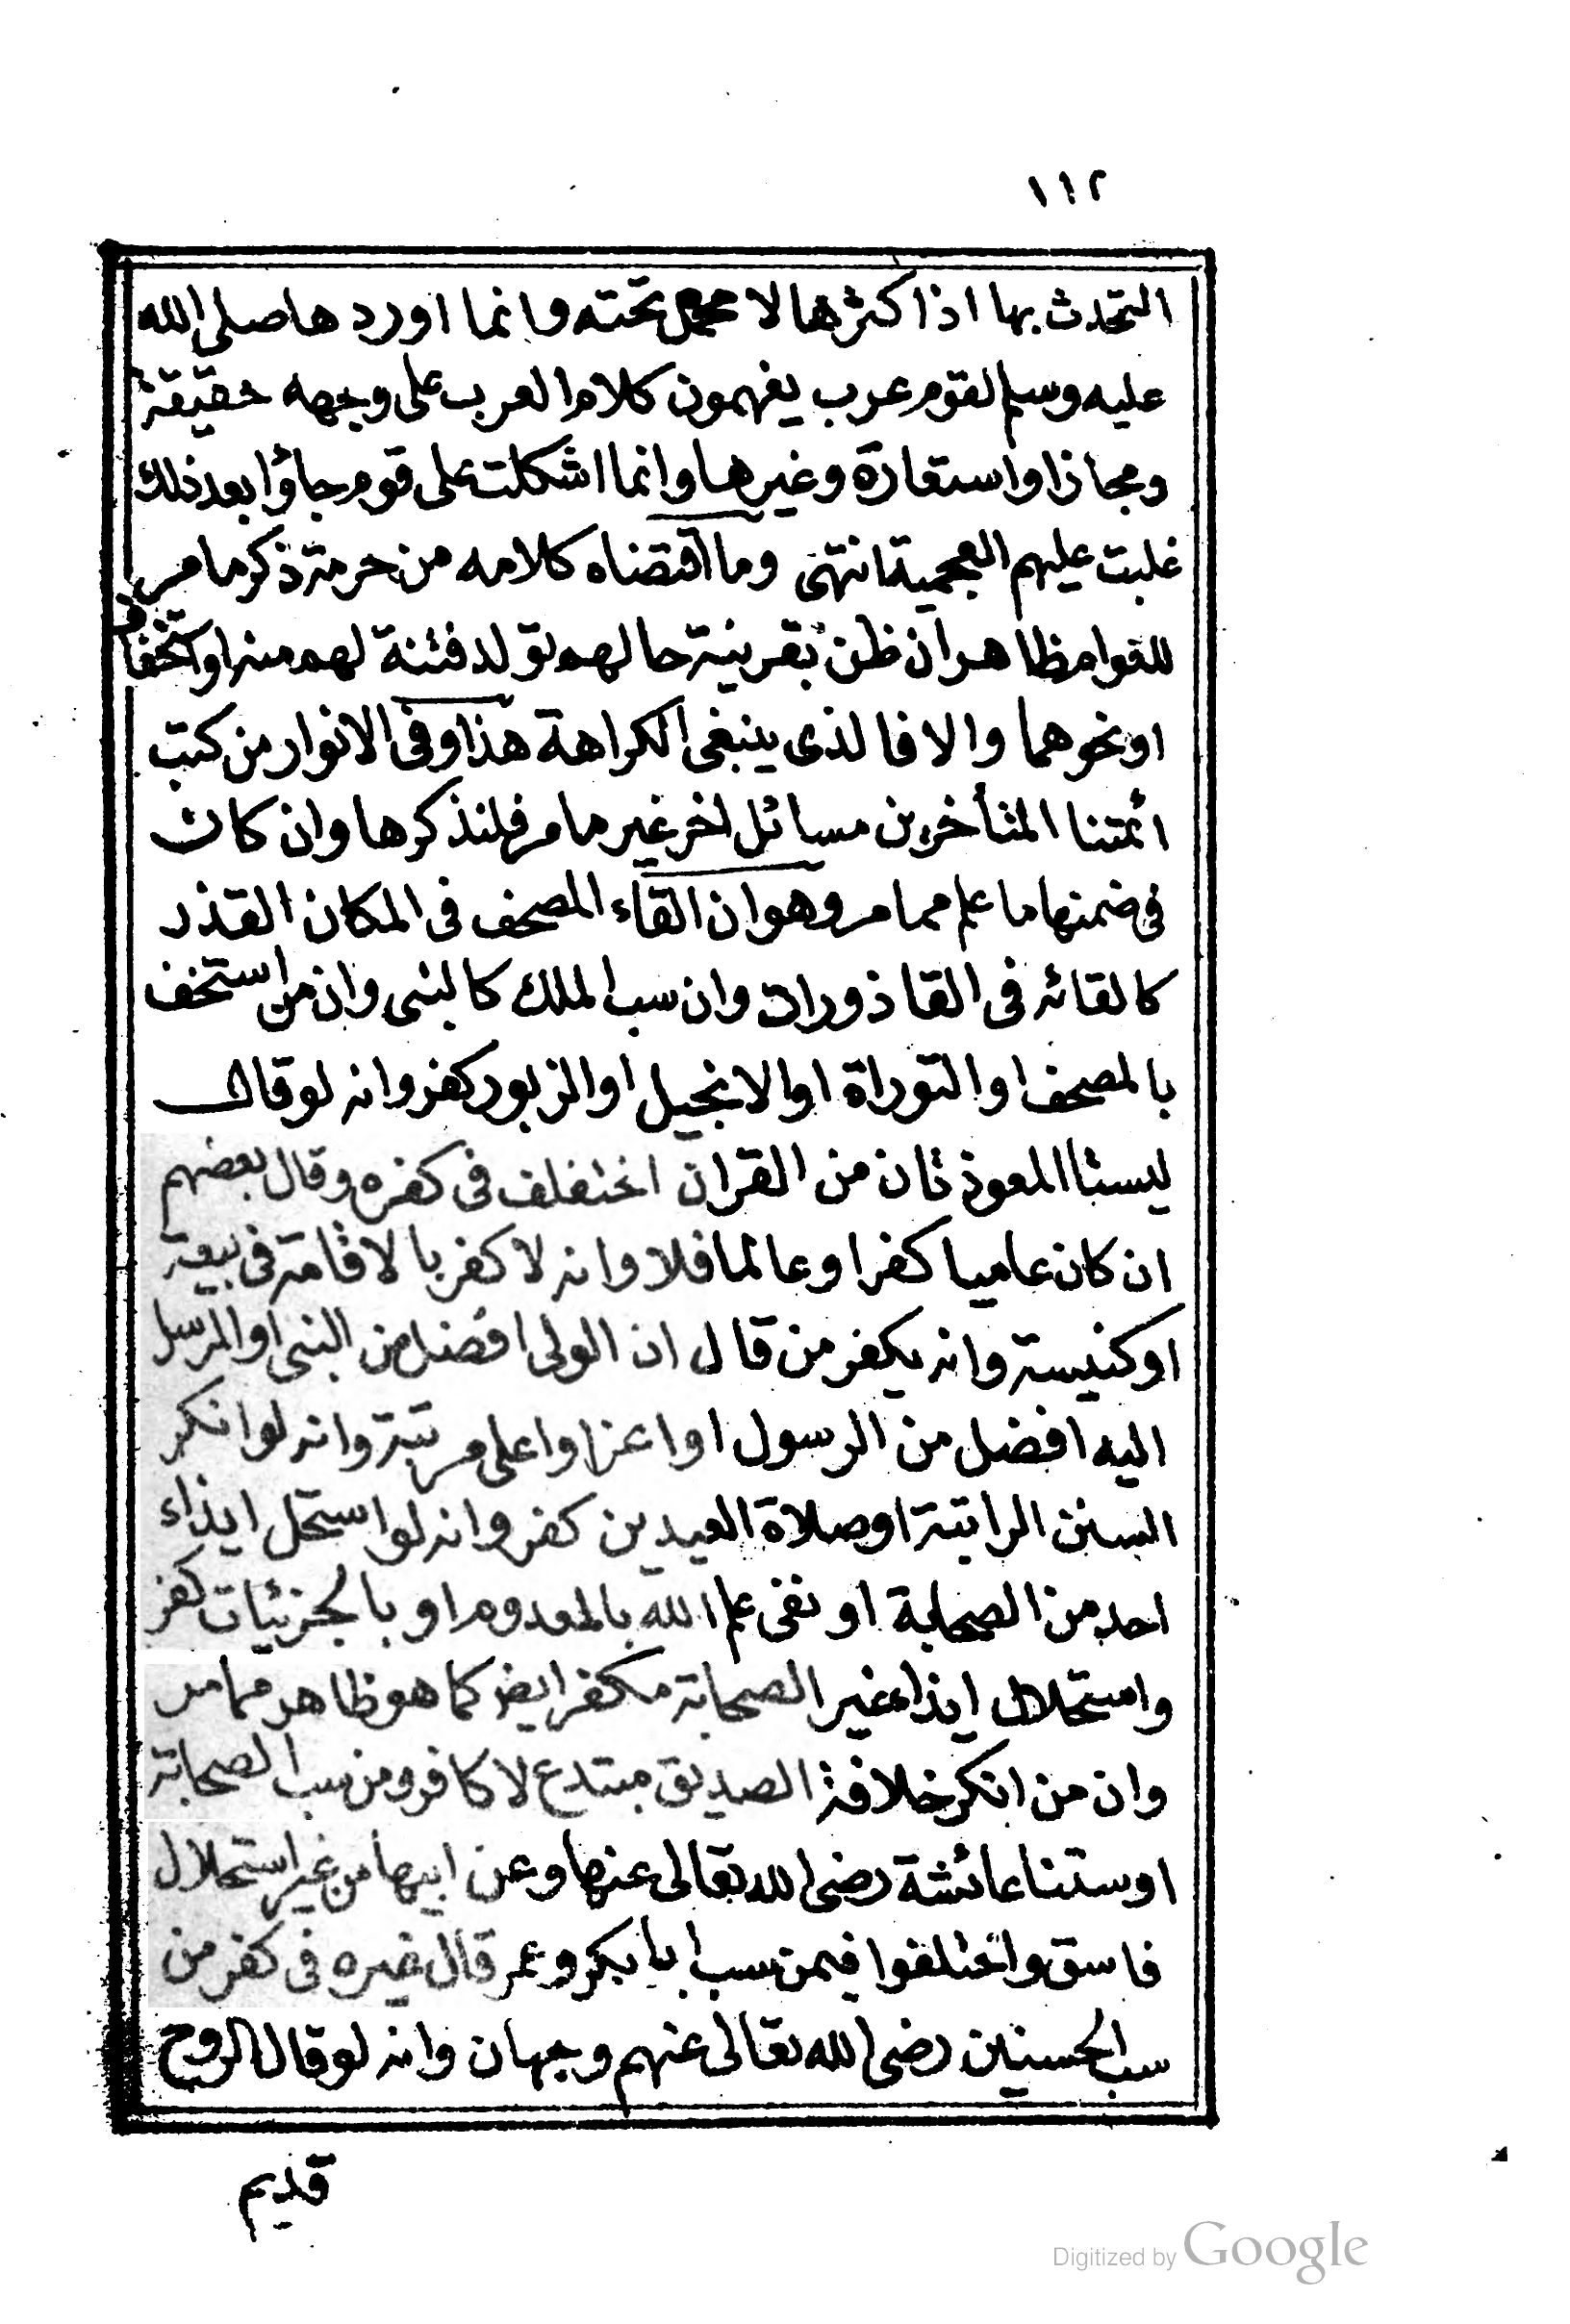 ١١٢
التحدث بها اذا كثرها لا محمل تحته وانما اوردها صلى الله
عليه وسلم لقوم عرب يفهمون كلام العرب على وجهه حقيقة
ومجازا واستعارة وغيرها وانما اشكلت على قوم جاؤا بعد ذلك
غلبت عليهم العجمية انتهى وما اقتضاه كلامه من حرمة ذكر ما مر
للعوام ظاهر ان ظن بقرينة حالهم تولد فتنة لهم منه او استخفاف
او نحوهما والا فالذى ينبغى الكراهة هذا وفى الانوار من كتب
ائمتنا المتأخرين مسائل اخر غير ما مر فلنذكرها وان كان
فى ضمنها ما علم مما مر وهو ان القاء المصحف فى المكان القذر
كالقائه فى القاذورات وان سب الملك كالنبى وان من استخف
بالمصحف او التوراة او الانجيل او الزبور كفر وانه لو قال
ليستا المعوذتان من القران اختفلف فى كفره وقال بعضهم
ان كان عاميا كفر او عالما فلا وانه لا كفر بالاقامة فى بيعة
او كنيسة وانه يكفر من قال ان الولى افضل من النبى او المرسل
اليه افضل من الرسول او اعز او اعلى مرتبة وانه لو انكر
السنن الراتبة او صلاة العيدين كفر وانه لو استحل ايذاء
احد من الصحابة او نفى علم الله بالمعدوم او بالجزئيات كفر
واستحلال ايذاء غير الصحابة مكفر ايض كما هو ظاهر مما مر
وان من انكر خلافة الصديق مبتدع لا كافر ومن سب الصحابة
او ستنا عائشة رضى الله تعالى عنها وعن ابيها من غير استحلال
فاسق واختلفوا فيمن سب ابا بكر وعمر قال غيره فى كفر من
سب الحسنين رضى الله تعالى عنهم وجهان وانه لو قال الروح
قديم
Digitized by Google